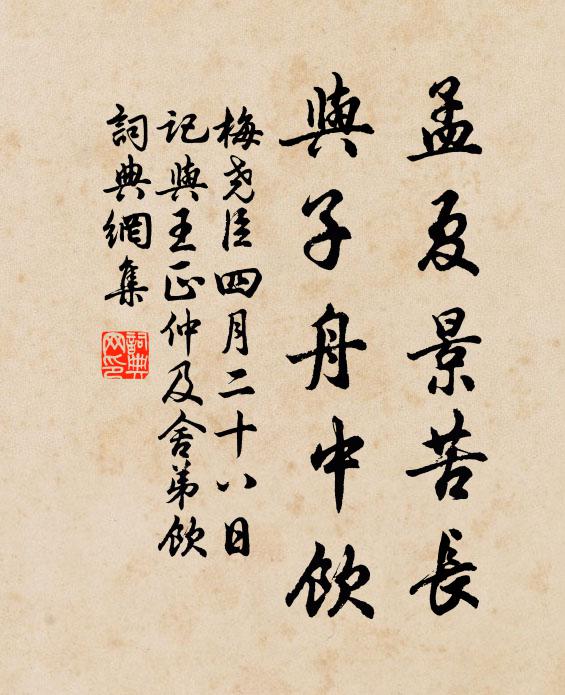 孟夏景苦長
與子舟中飲
梅堯臣四月二十八日
記與王正仲及舍弟飲
詞典網集
詞典網印